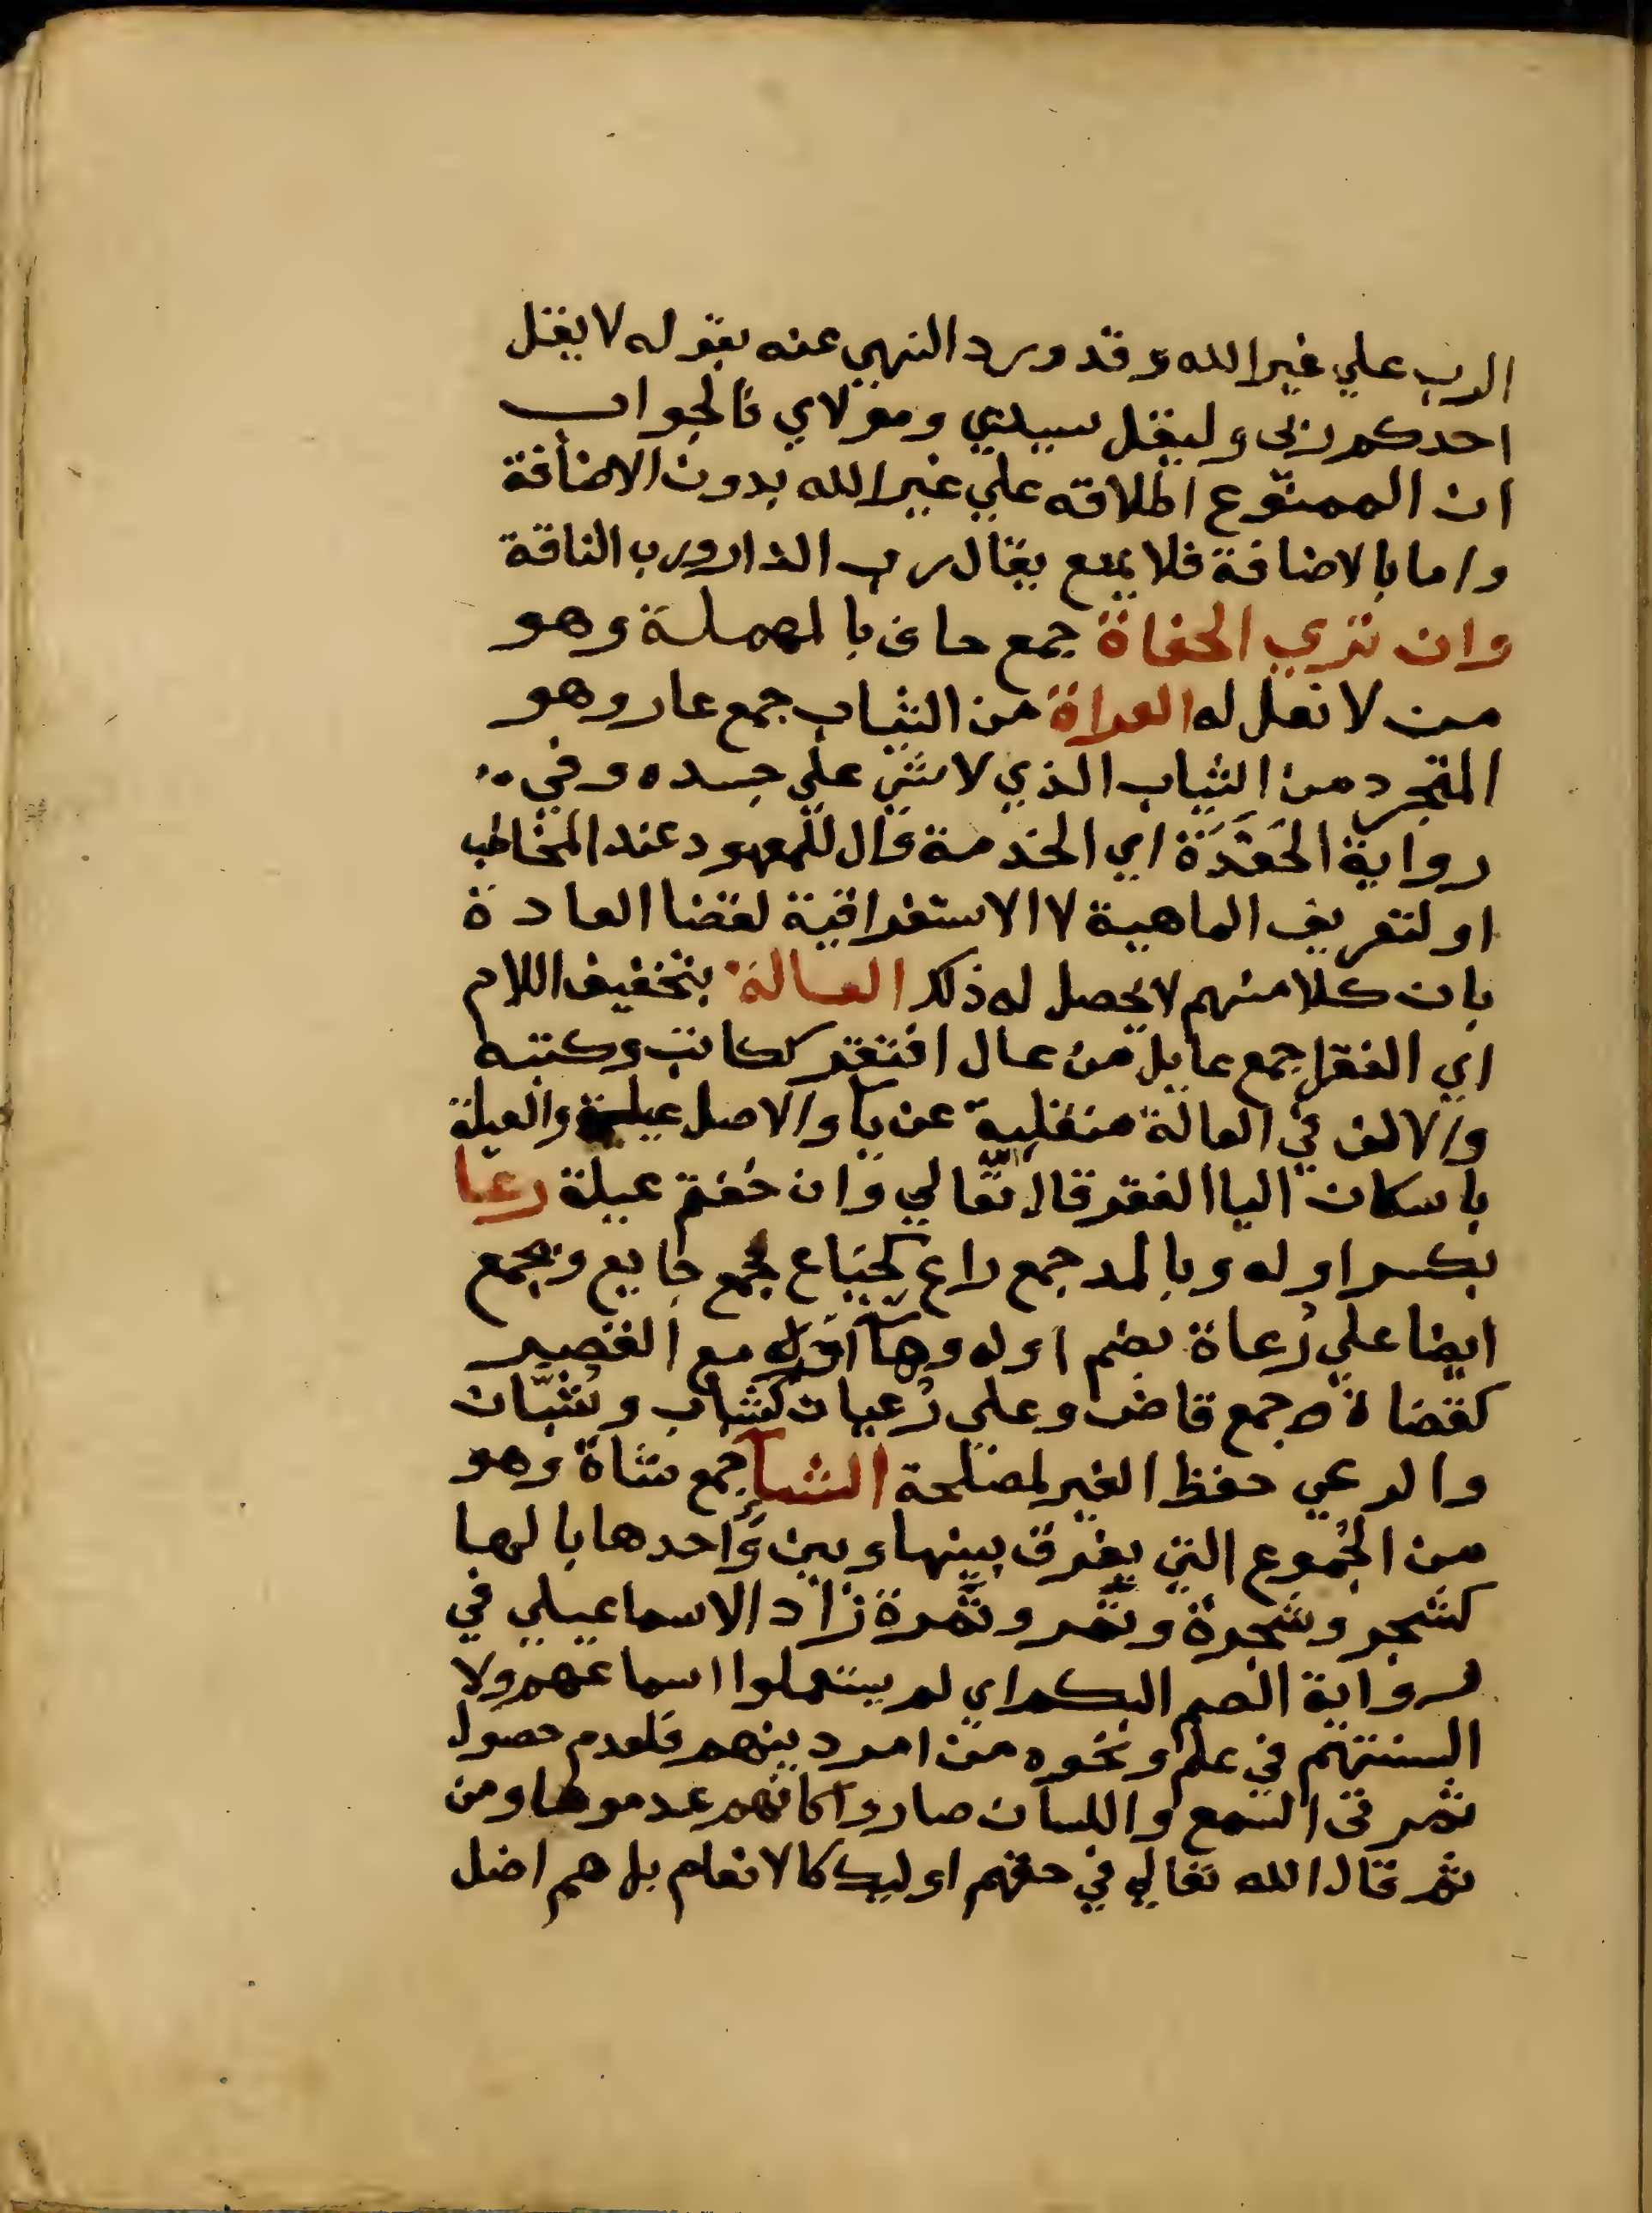 الرب علي غير الله وقد ورد النهي عنه بقوله لا يقل
احدكم ربي وليقل سيدي ومولاي فالجواب
ان الممنوع اطلاقه علي غير الله بدون الاضافة
واما بالاضافة فلا يمنع يقال رب الدار ورب الناقة
وان تري الحفاة جمع حاف بالمهملة وهو
من لا نعل له العراة من الثياب جمع عار وهو
المتجرد من الثياب الذي لا شي علي جسده وفي
رواية الحَفَدَة اي الخدمة فال للمعهود عند المخاطب
او لتعريف الماهية لا الاستغراقية لقضا العادة
بان كلا منهم لا يحصل له ذلك العالة بتخفيف اللام
اي الفقرا جمع عايل من عال افتقر ككاتب وكتبه
والالف في العالة منقلبة عن يا والاصل عيلة والعيلة
باسكان اليا الفقر قال تعالي وان خفتم عيلة رعا
بكسر اوله وبالمد جمع راع كجياع جمع جايع ويجمع
ايضا علي رُعاة بضم اوله وهآ اخره مع القصر
كقضاة جمع قاض وعلي رُعيان كشاب وشُبّان
والرعي حفظ الغير لمصلحة الشآ جمع شاة وهو
من الجُموع التي يفرق بينها وبين وَاحدها بالها
كشجر وشجرة وثمر وثمرة زاد الاسماعيلي في
رواية الصم البكم اي لم يستعملوا اسماعهم ولا
السنتهم في علم ونحوه من امر دينهم فلعدم حصول
ثمرتي السمع واللسان صاروا كانهم عدموهما ومن
ثم قال الله تعالي في حقهم اوليك كالانعام بل هم اضل